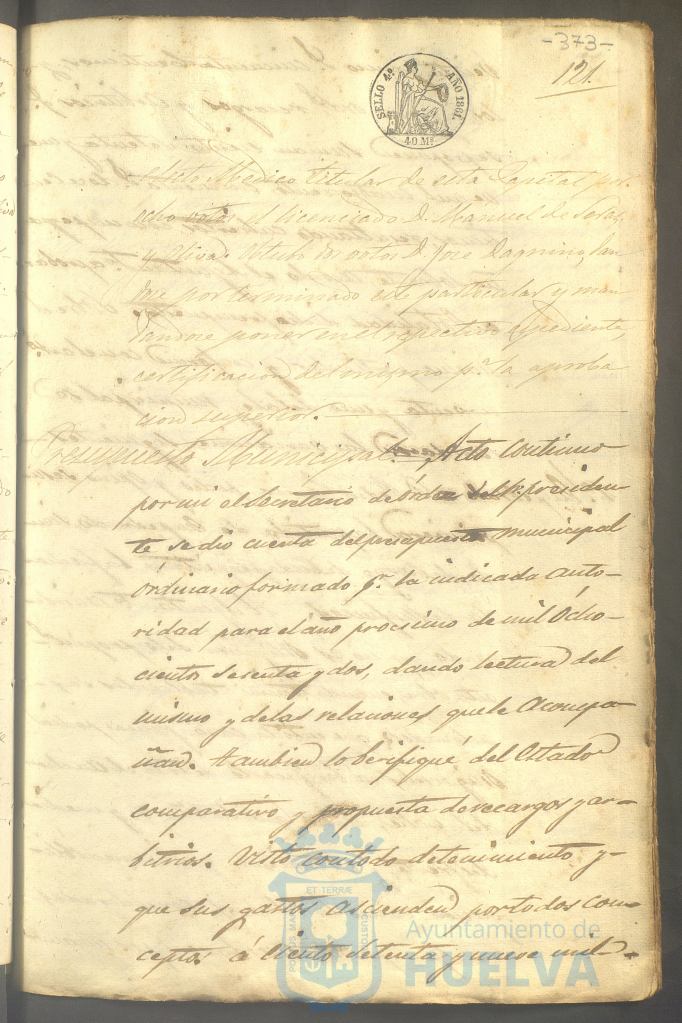 -373-
121.
SELLO 4º. AÑO 1861.
40 Ms.
electo Medico titular de esta Capital por
ocho votos el licenciado D. Manuel de
y Oliva. Obtubo dos votos D. Jose Dagnino, dan
dose por terminado este particular y man
dandose poner en el respectivo expediente,
certificacion del mismo pª. la aproba
cion superior.
Presupuesto Municipal. Acto continuo
por mi el Secretario de órden del Sr. presiden
te se dio cuenta del presupuesto municipal
órdinario formado pr. la indicada auto-
ridad para el año procsimo de mil Ócho-
cientos sesenta y dos, dando lectura del
mismo y de las relaciones que le acompa-
ñan. tambien lo berifiqué del Estado
comparativo y propuesta de recargos y ar-
bitrios. Visto con todo detenimiento, y-
que sus gastos ascienden por todos con-
ceptos á Ciento setenta y nueve mil-
PORTUS MARIS ET TERRÆ CUSTODIA
Ayuntamiento de
HUELVA